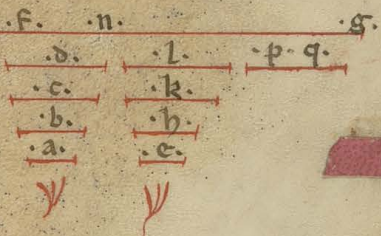 ·f· ·n· ·g·
·d· ·l· ·p· q·
·c· ·k·
·b· ·h·
·a· ·e·